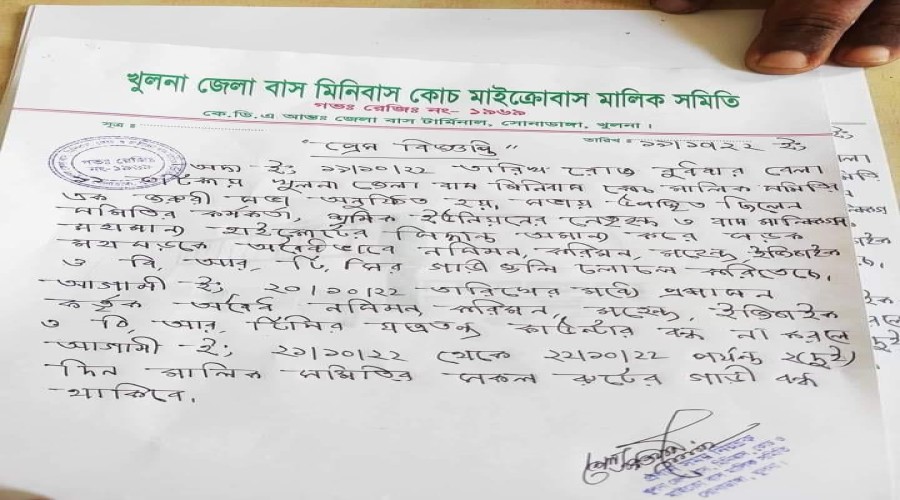 খুলনা জেলা বাস মিনিবাস কোচ মাইক্রোবাস মালিক সমিতি
গভঃ রেজিঃ নং- ১৯৬৯
কে.ডি.এ আন্তঃ জেলা বাস টার্মিনাল, সোনাডাঙ্গা, খুলনা ।
সূত্র ঃ
তারিখ ঃ ১৯/১০/২২ ইং
"প্রেস বিজ্ঞপ্তি"
গভঃ রেজিঃ
নং-১৯৬৯
অদ্য ইং ১৯/১০/২২ তারিখ রোজ বুধবার বেলা
খুলনা জেলা বাস মিনিবাস কোচ মালিক সমিতির
এক জরুরী সভা অনুষ্ঠিত হয়, সভায় উপস্থিত ছিলেন
সমিতির কর্মকর্তা, শ্রমিক ইউনিয়নের নেতৃবৃন্দ ও বাস মালিকগন
মহামান্য হাইকোর্টের সিদ্ধান্ত অমান্য করে সড়ক
মহাসড়কে অবৈধভাবে নসিমন, করিমন, মহেন্দ্র, ইজিবাইক
ও বি, আর, টি, সির গাড়ী গুলি চলাচল করিতেছে,
আগামী ইং ২০/১০/২২ তারিখের মধ্যে প্রশাসন
কর্তৃক অবৈধ নসিমন, করিমন, মহেন্দ্র, ইজিবাইক
ও বি, আর, টিসির যত্রতত্র কাউন্টার বন্ধ না করলে
আগামী ইং ২১/১০/২২ থেকে ২২/১০/২২ পর্যন্ত ২(দুই)
দিন মালিক সমিতির সকল রুটের গাড়ী বন্ধ
থাকিবে,